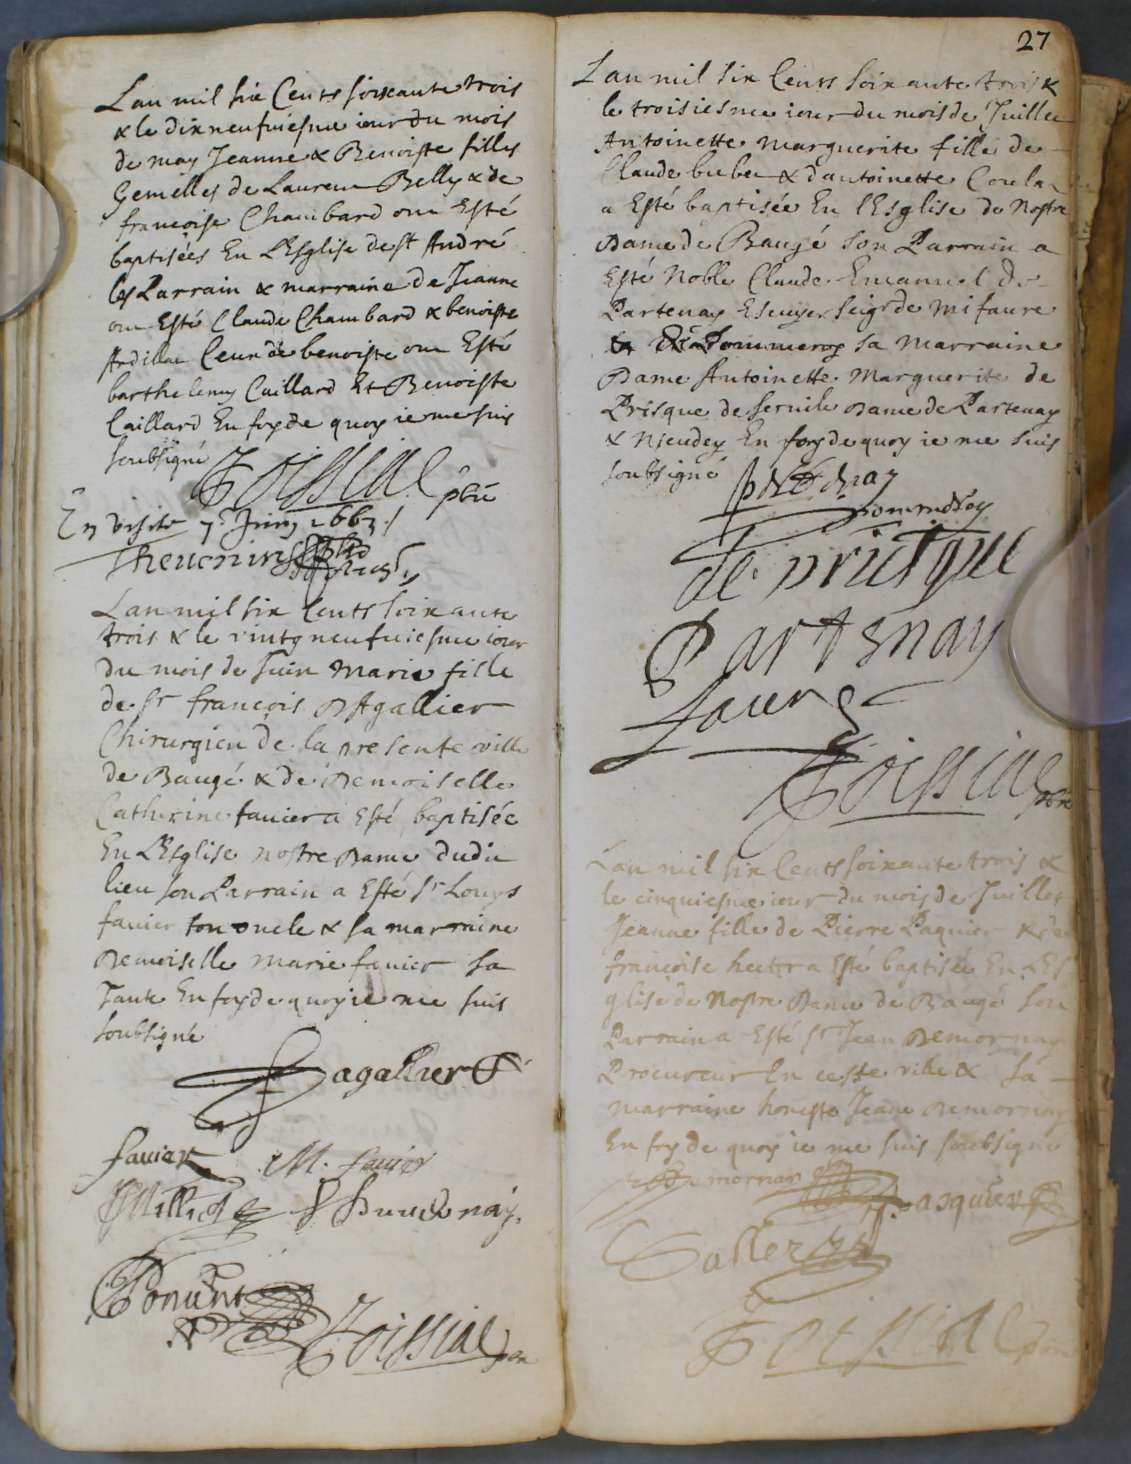 Lan mil six Cents soixante trois
& le dix neufuiesme iour du mois
de may Jeanne & Benoiste filles
Gemelles de Laurens Belly & de
francoise Chambard ont Esté
baptisées En LEsglise de st André
les Parrain & marraine de Jeanne
ont Esté Claude Chambard & benoiste
Ardillat Ceux de benoiste ont Esté
barthelemy Caillard Et Benoiste
Caillard En foy de quoy ie me suis
soubsigné
Toissiat pbre
En visite 7e Juin 1663
Lan mil six Cents soixante
trois & le vintg neufuiesme iour
du mois de Juin Marie fille
de sr francois Dagallier
Chirurgien de la presente ville
de Baugé & de Demoiselle
Catherine fauier a Esté baptisée
En LEsglise nostre Dame dudit
lieu son Parrain a Esté sr Louys
fauier son oncle & sa marraine
Demoiselle Marie fauier sa
Tante En foy de quoy ie me suis
soubsigné
Dagallier
fauier M. fauier
Ponent
Toissiat
27
Lan mil six Cents soixante trois &
le troisiesme iour du mois de Juillet
Antoinette Marguerite fille de
Claude & dantoinette
a Esté baptisée En lEsglise de Nostre
Dame de Baugé Son Parrain a
Esté Noble Claude Emanuel de
Partenay Escuyer Seigr de Mifaure
sa Marraine
Dame Antoinette Marguerite de
Prisque de seruile Dame de Partenay
& En foy de quoy ie me suis
soubsigné
de prisque
Partenay
Toissiat
Lan mil six Cents soixante trois &
le cinquiesme iour du mois de Juillet
Jeanne fille de Pierre Paquier & de
françoise a Esté baptisée En LEs
glise de Nostre Dame de Baugé son
Parrain a Esté sr Jean Demornay
Procureur En ceste ville & sa
marraine honeste Jeane Demornay
En foy de quoy ie me suis soubsigné
Demornay
Pasquier
Toissiat